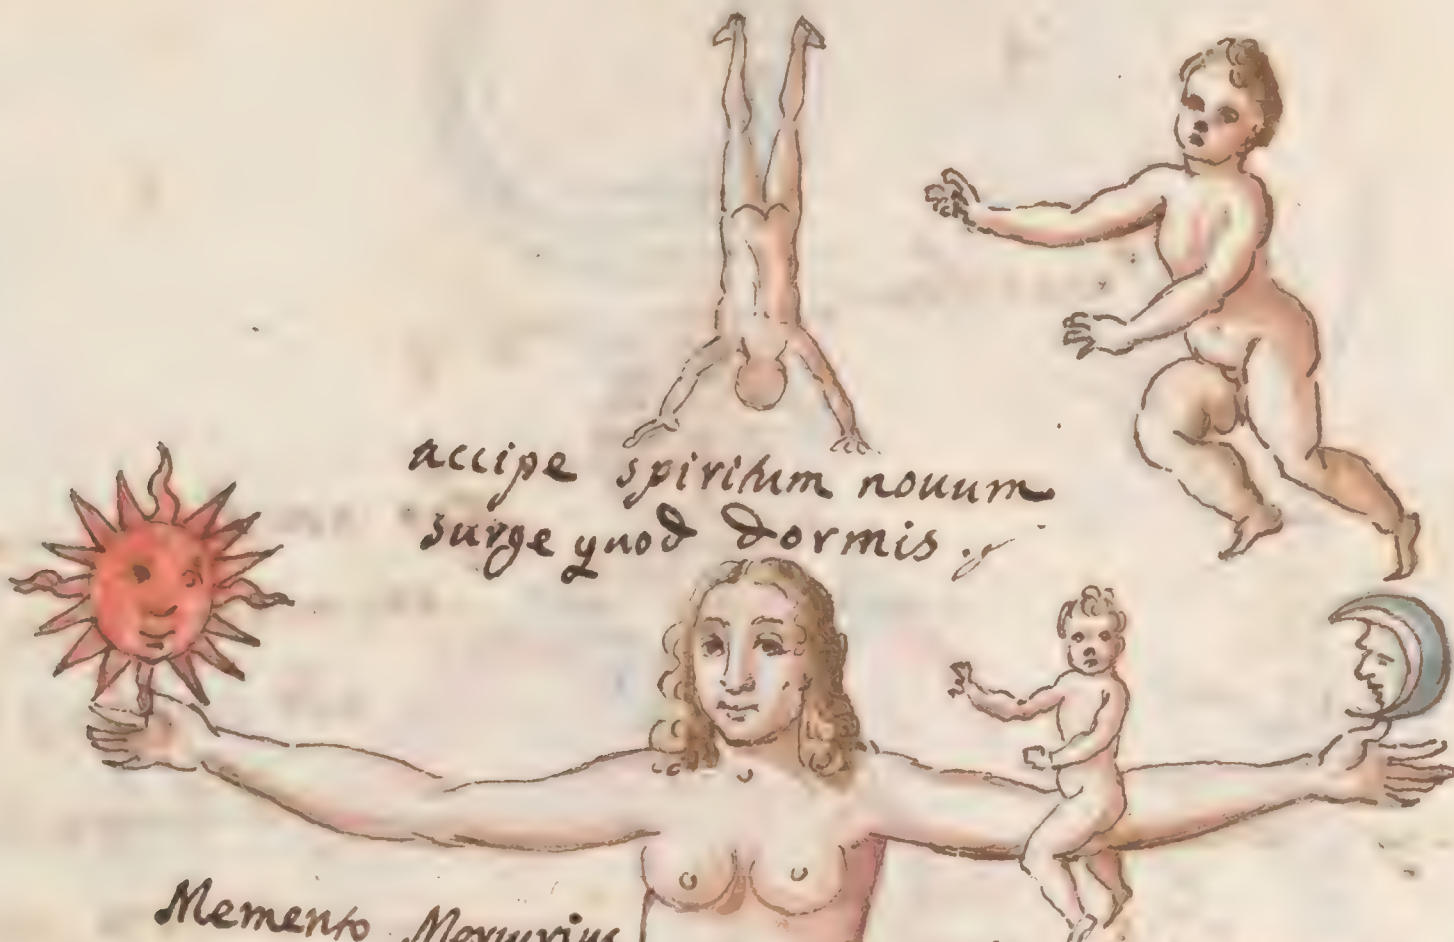 accipe spiritum nouum
surge quod dormis.
Memento Mercurius